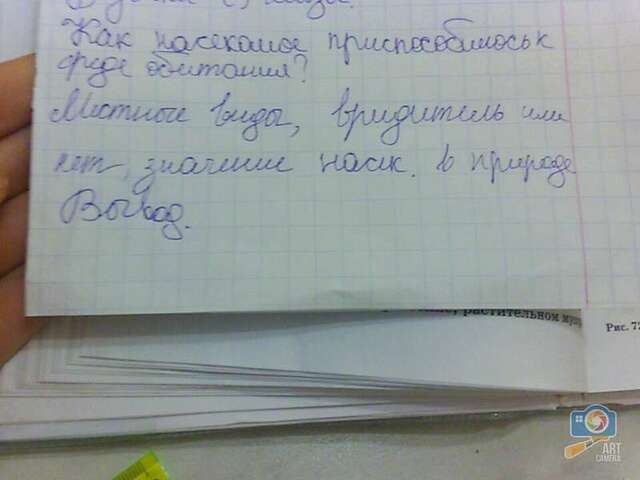 Как насекомое приспособилоськ
среде обитания?
Местные виды, вридитель или
нет, значение насек. в природе
Вывод.
растительном
Рис. 72
ART
CAMERA